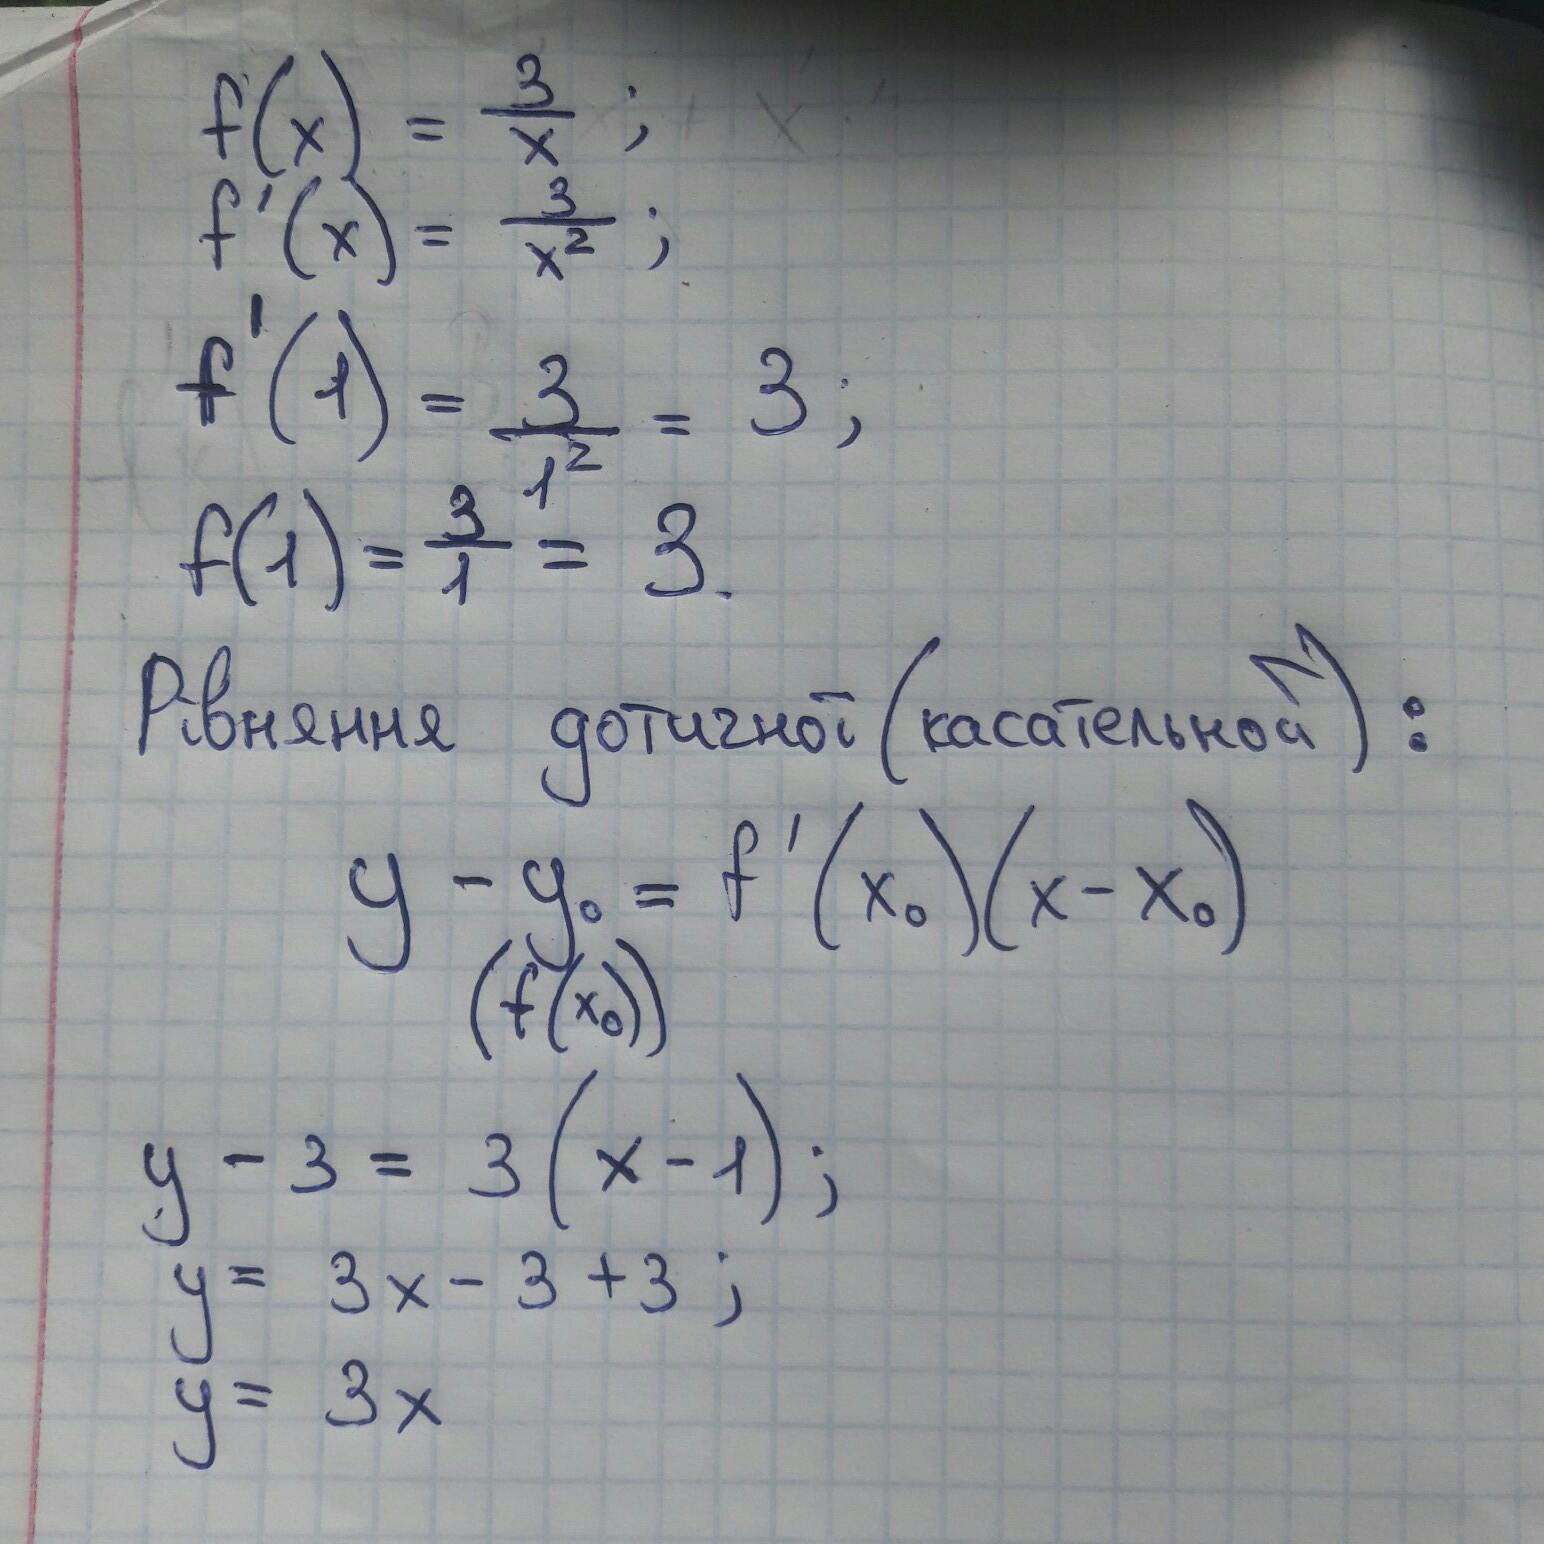 f(x) = 3/x ;
f'(x) = 3/x² ;
f'(1) = 3/1² = 3 ;
f(1) = 3/1 = 3.
Рівняння дотичної (касательной) :
y - y₀ = f'(x₀)(x - x₀)
(f(x₀))
y - 3 = 3(x - 1) ;
y = 3x - 3 + 3 ;
y = 3x